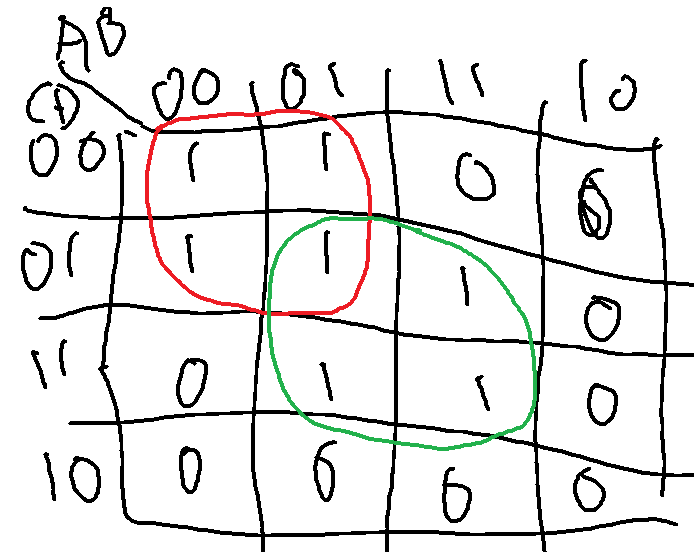 AB
CD 00 01 11 10
00 1 1 0 0
01 1 1 1 0
11 0 1 1 0
10 0 0 0 0